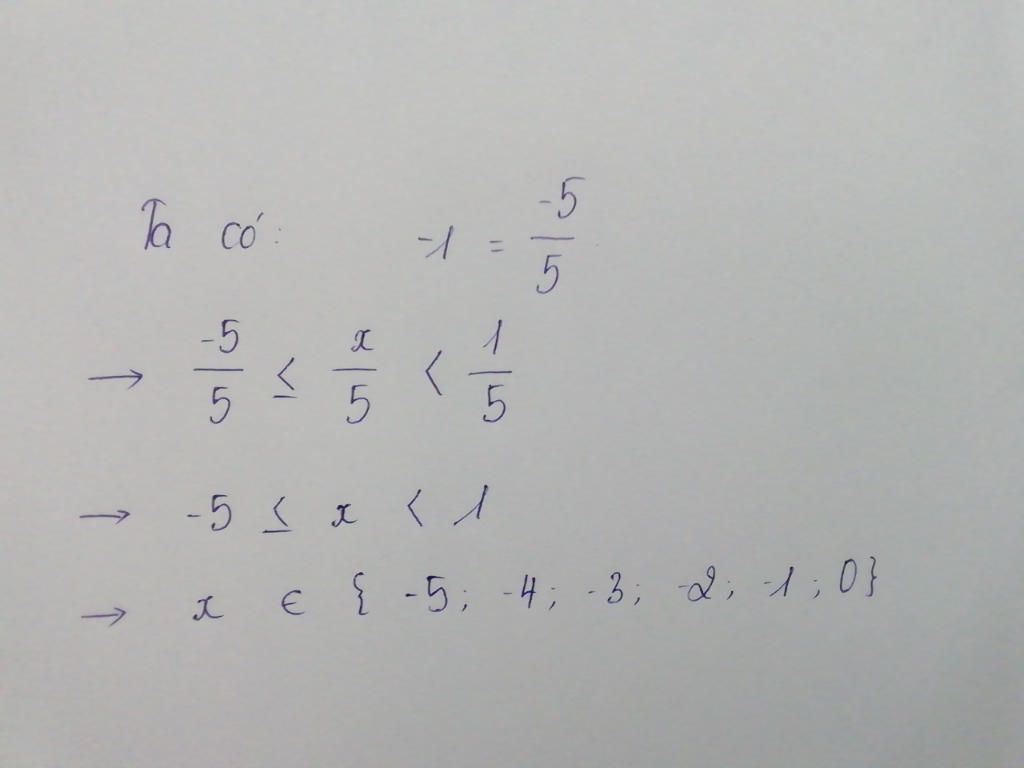 Ta có: -1 = -5/5
→ -5/5 ≤ x/5 < 1/5
→ -5 ≤ x < 1
→ x ∈ { -5; -4; -3; -2; -1; 0}